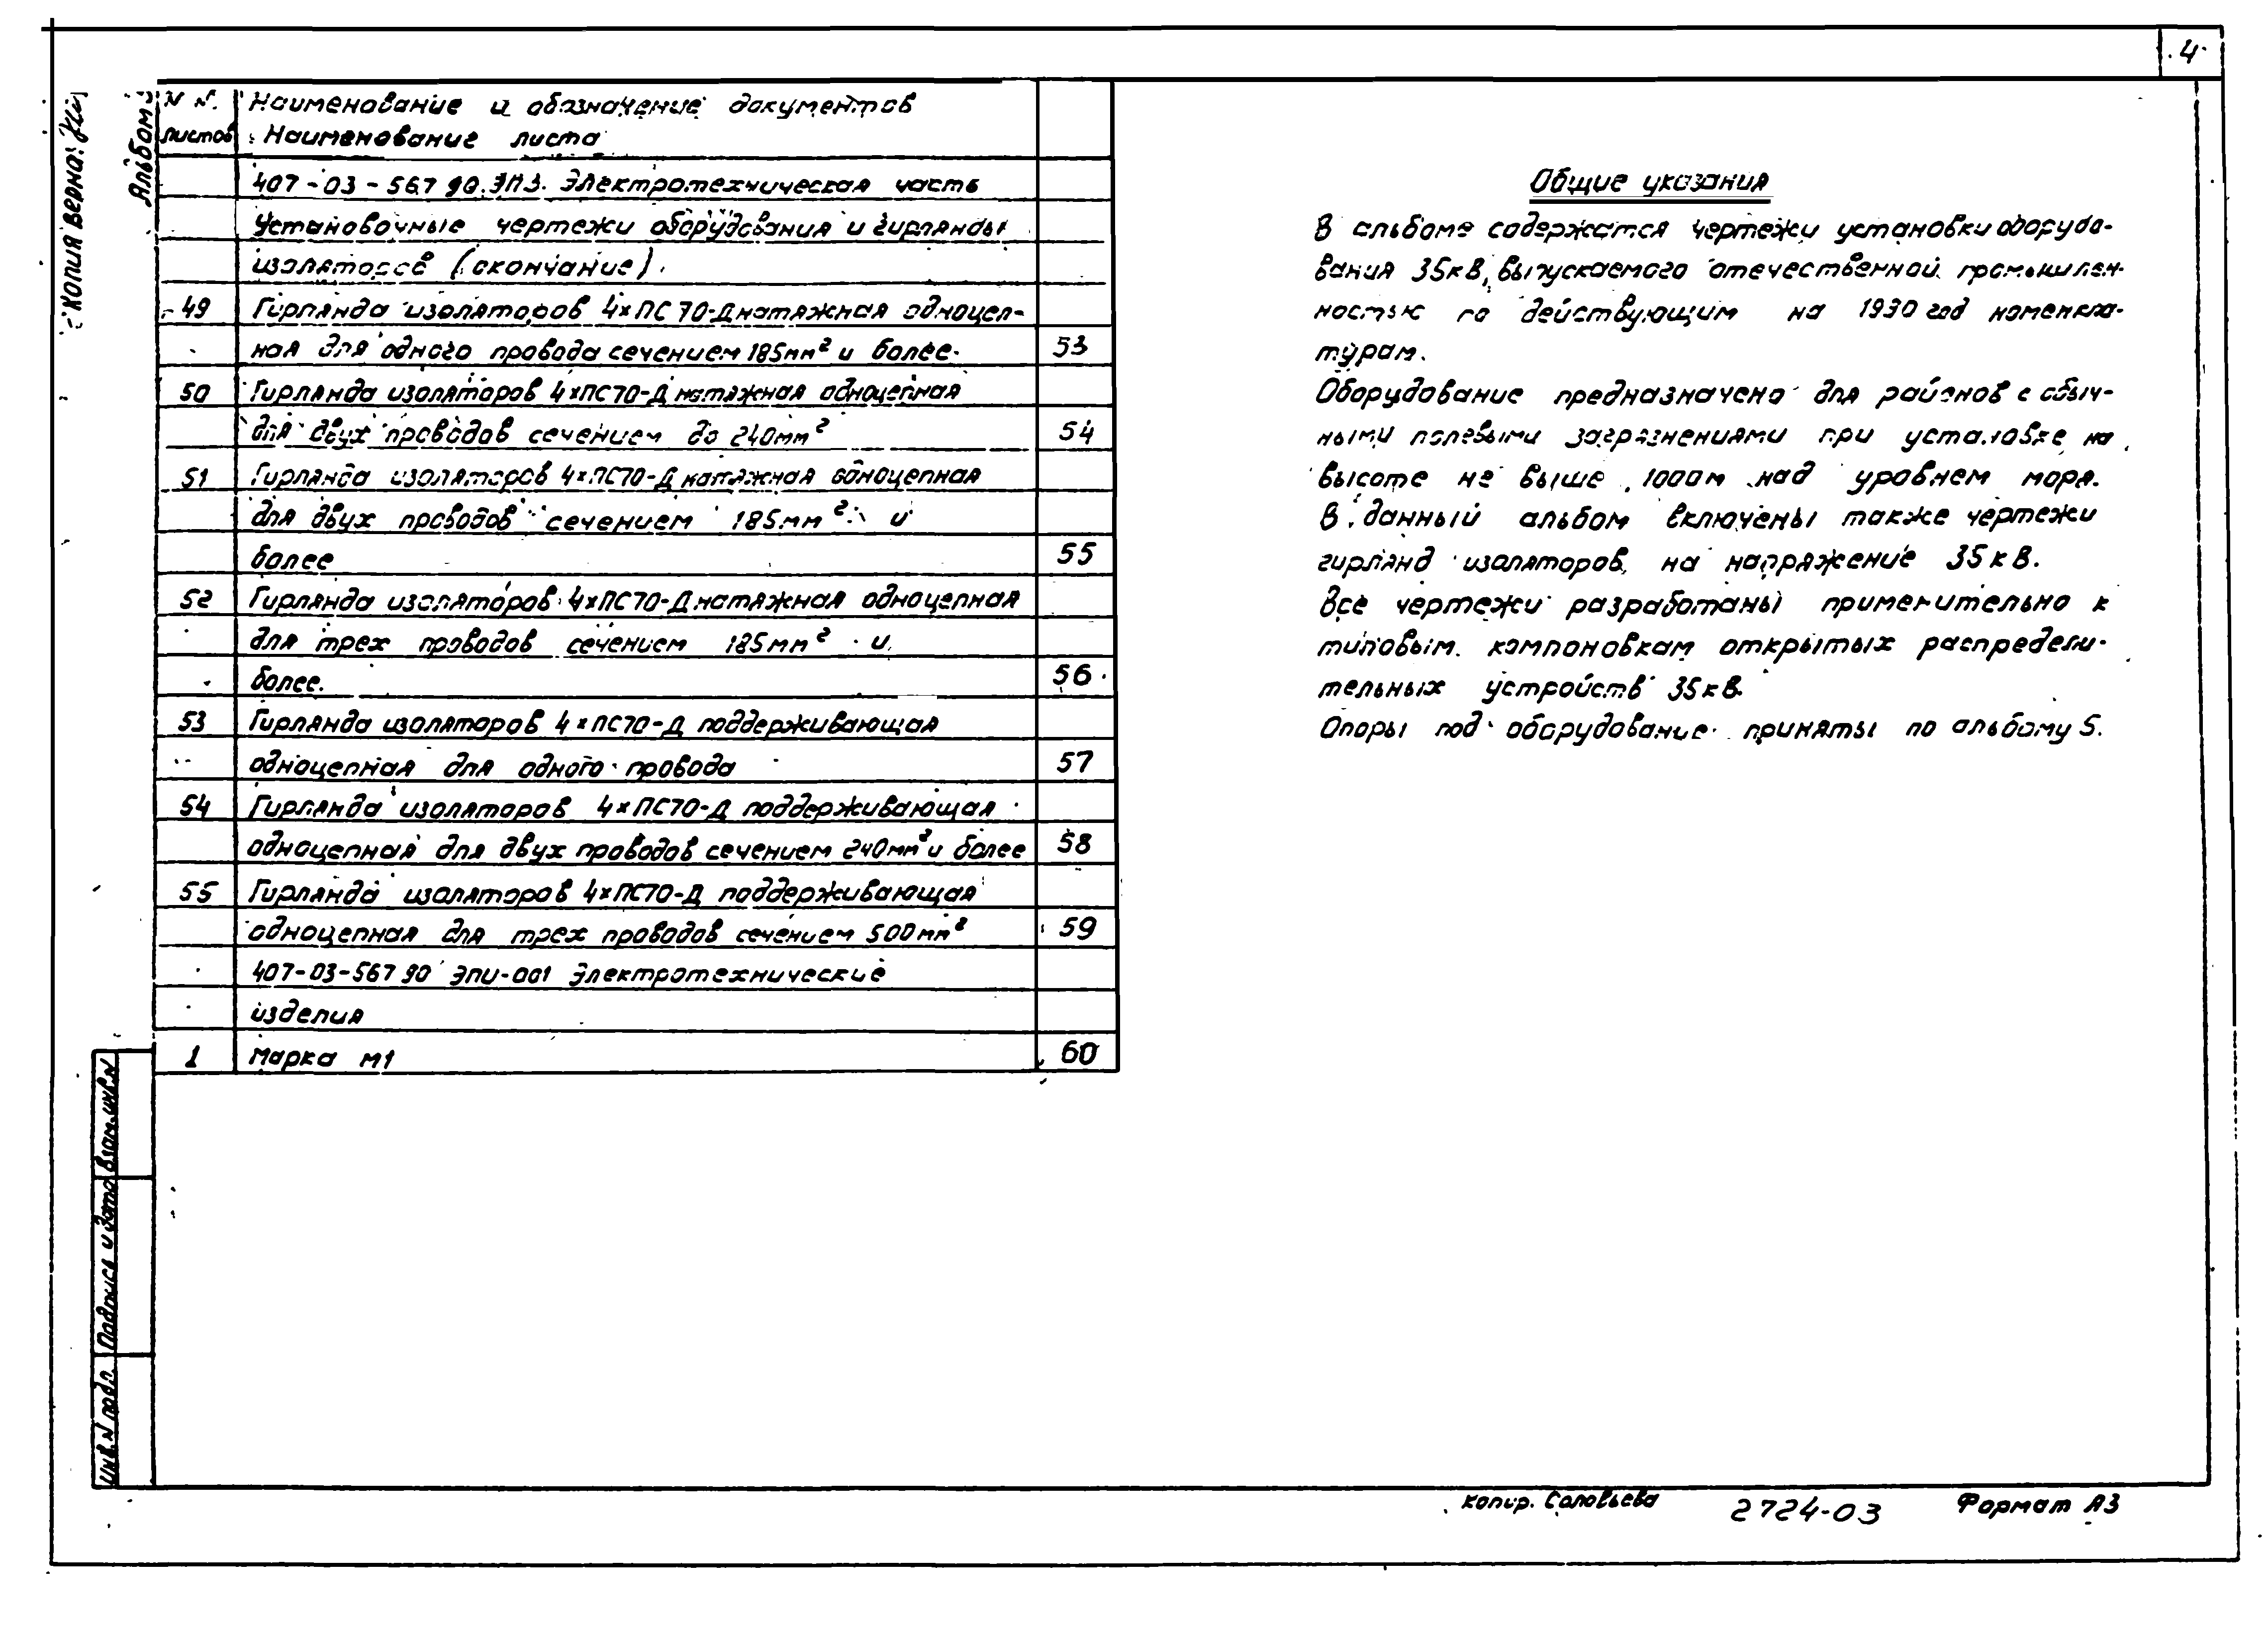 4
Копия верна:
Альбом
N N. Наименование и обозначение документов
листов Наименование листа
407-03-567 90.ЭП3. Электротехническая часть
Установочные чертежи оборудования и гирлянды
изоляторов (окончание).
49 Гирлянда изоляторов 4×ПС 70-Д натяжная одноцеп-
ная для одного провода сечением 185мм² и более. 53
50 Гирлянда изоляторов 4×ПС70-Д натяжная одноцепная
для двух проводов сечением до 240мм² 54
51 Гирлянда изоляторов 4×ПС70-Д натяжная одноцепная
для двух проводов сечением 185мм² и
более 55
52 Гирлянда изоляторов 4×ПС70-Д натяжная одноцепная
для трех проводов сечением 185мм² и
более. 56
53 Гирлянда изоляторов 4×ПС70-Д поддерживающая
одноцепная для одного провода 57
54 Гирлянда изоляторов 4×ПС70-Д поддерживающая
одноцепная для двух проводов сечением 240мм² и более 58
55 Гирлянда изоляторов 4×ПС70-Д поддерживающая
одноцепная для трех проводов сечением 500мм² 59
407-03-567 90 ЭПИ-001 Электротехнические
изделия
1 Марка М1 60
Общие указания
В альбоме содержатся чертежи установки оборудо-
вания 35кВ, выпускаемого отечественной промышлен-
ностью по действующим на 1990 год номенкла-
турам.
Оборудование предназначено для районов с обыч-
ными полевыми загрязнениями при установке на
высоте не выше 1000м над уровнем моря.
В данный альбом включены также чертежи
гирлянд изоляторов на напряжение 35кВ.
Все чертежи разработаны применительно к
типовым компоновкам открытых распредели-
тельных устройств 35кВ.
Опоры под оборудование приняты по альбому 5.
Взам.инв.N
Подпись и дата
Инв.N подл.
копир. Соловьева 2724-03 Формат А3